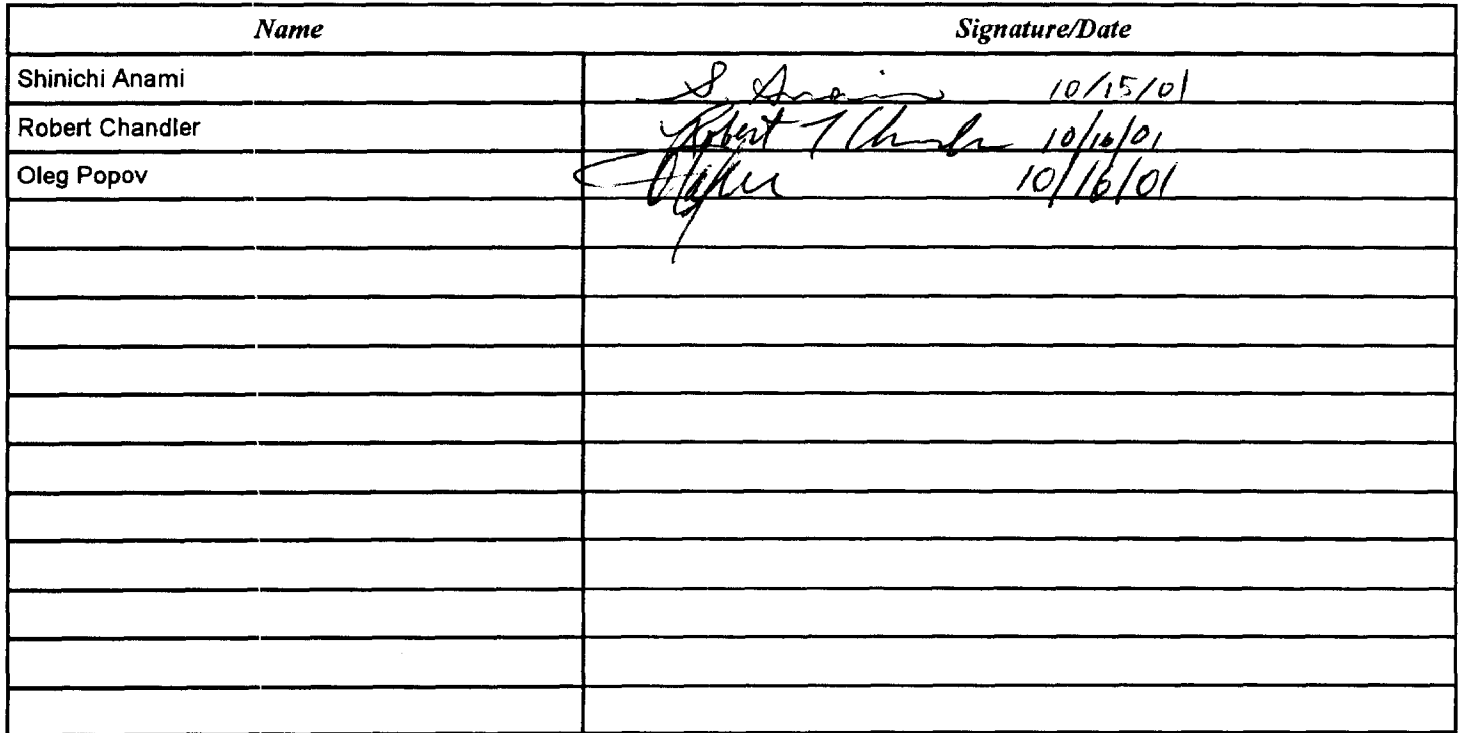 Name Signature/Date
Shinichi Anami S. Anami 10/15/01
Robert Chandler Robert T Chandler 10/16/01
Oleg Popov 10/16/01